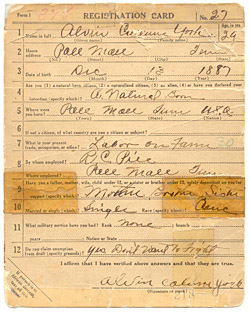 Form 1 REGISTRATION CARD No. 27
1 Name in full Alvin Cullum York Age, in yrs. 29
2 Home address Pall Mall Tenn
3 Date of birth Dec 13 1887
4 Are you (1) a natural-born citizen, (2) a naturalized citizen, (3) an alien, (4) or have you declared your
intention (specify which)? A Natural Born
5 Where were you born? Pall Mall Tenn USA
6 If not a citizen, of what country are you a citizen or subject?
7 What is your present trade, occupation, or office? Labor on Farm
8 By whom employed? R.C. Pile
Where employed? Pall Mall Tenn
9 Have you a father, mother, wife, child under 12, or a sister or brother under 12, solely dependent on you for
support (specify which)? Mother Brother Sister
10 Married or single (which)? Single Race (specify which)? Cauc
11 What military service have you had? Rank none ; branch
years Nation or State
12 Do you claim exemption from draft (specify grounds)? Yes. Dont Want To Fight
I affirm that I have verified above answers and that they are true.
Alvin Cullum York